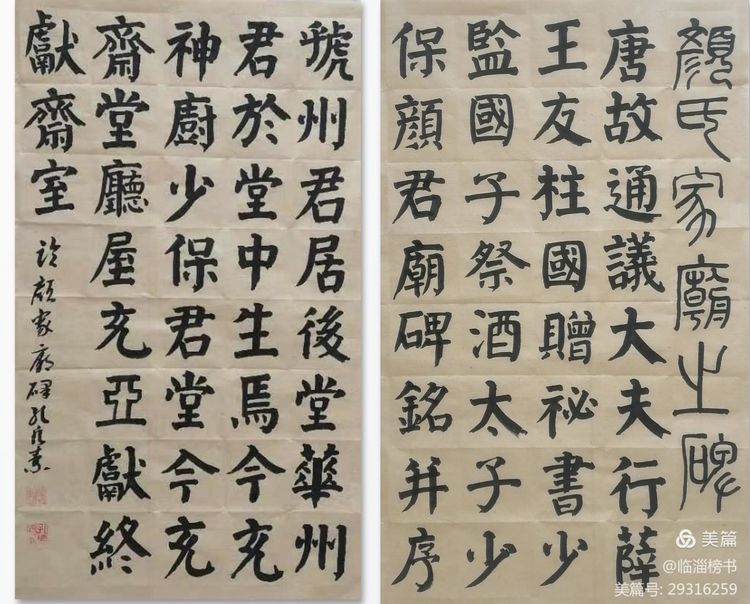 顏氏家廟之碑
唐故通議大夫行薛
王友柱國贈祕書少
監國子祭酒太子少
保顏君廟碑銘并序
虢州君居後堂華州
君於堂中生焉今充
神廚少保君堂今充
齋堂廳屋充亞獻終
獻齋室
临顏家廟碑
美篇
@临淄榜书
美篇号: 29316259